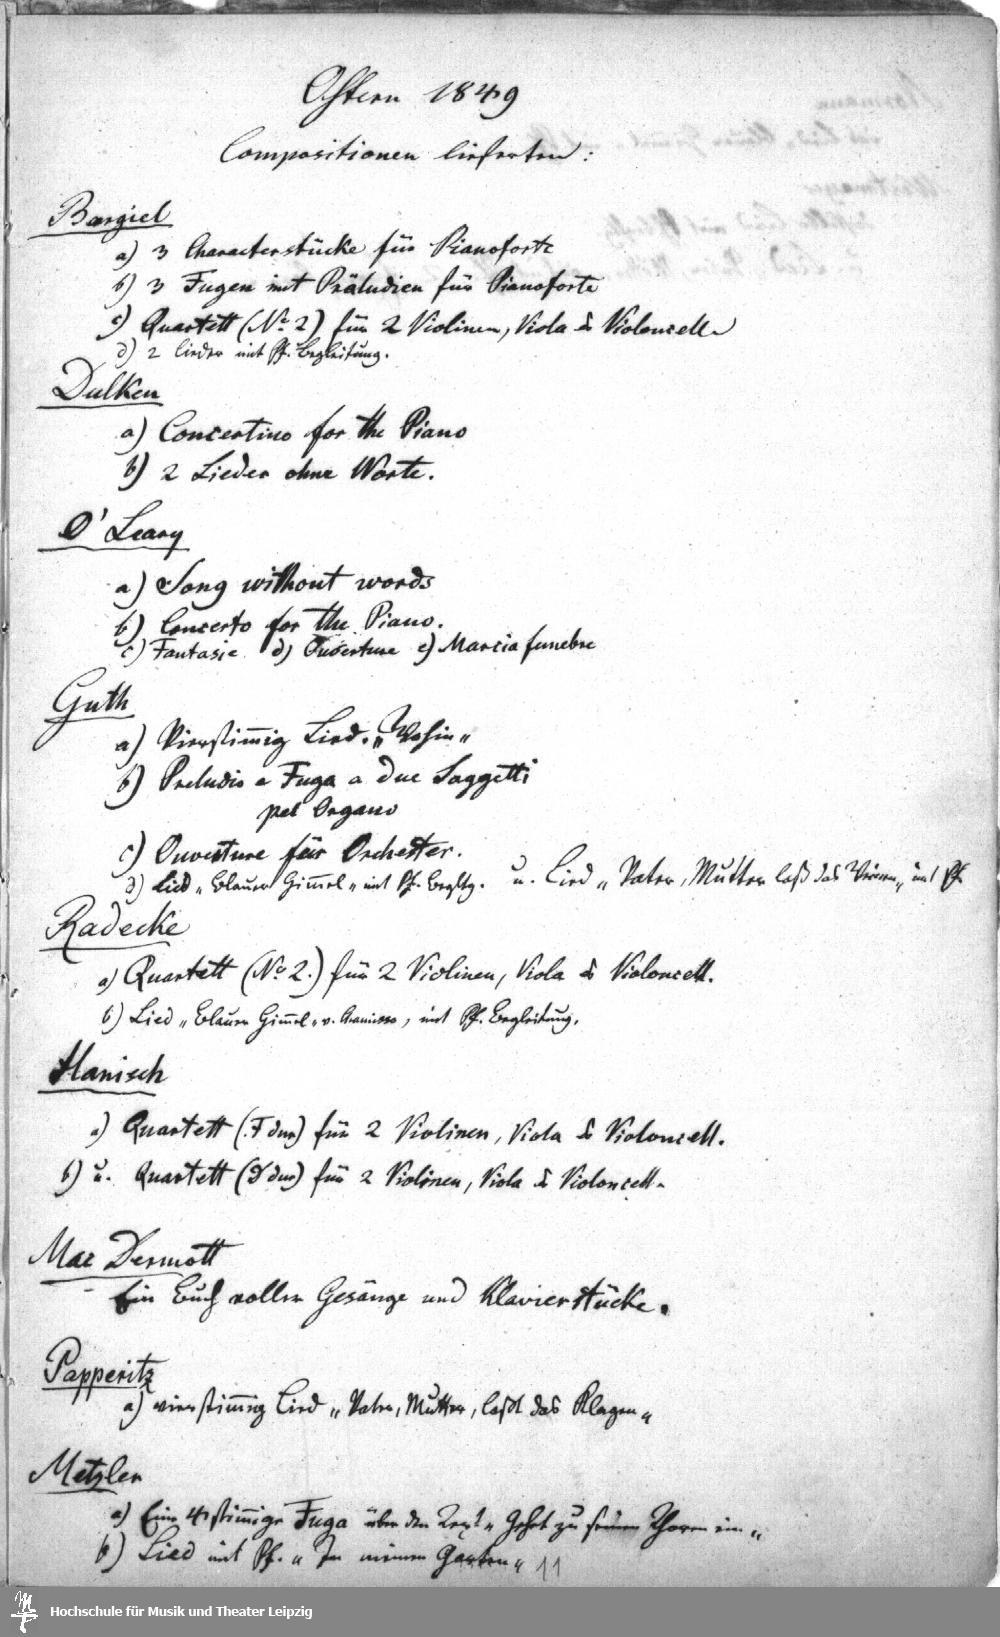 Ostern 1849
Compositionen lieferten:
Bargiel
a) 3 Characterstücke für Pianoforte
b) 3 Fugen mit Präludien für Pianoforte
c) Quartett (No 2) für 2 Violinen, Viola & Violoncell.
d) 2 Lieder mit Pf. Begleitung.
Dulken
a) Concertino for the Piano
b) 2 Lieder ohne Worte.
O'Leary
a) Song without words
b) Concerto for the Piano.
c) Fantasie d) Ouverture e) Marcia funebre
Guth
a) Vierstimmig Lied. „Wohin"
b) Preludio e Fuga a due Soggetti
pel Organo
c) Ouverture für Orchester.
d) Lied „Blauer Himmel" mit Pf. Begltg. u. Lied „Vater, Mutter laß das Weinen" mit Pf.
Radecke
a) Quartett (No 2.) für 2 Violinen, Viola & Violoncell.
b) Lied „Blauer Himmel" v. Chamisso, mit Pf. Begleitung.
Hanisch
a) Quartett (F dur) für 2 Violinen, Viola & Violoncell.
b) u. Quartett (D dur) für 2 Violinen, Viola & Violoncell.
Mac Dermott
Ein Buch voller Gesänge und Klavierstücke.
Papperitz
a) vierstimmig Lied „Vater, Mutter, laßt das Klagen"
Metzler
a) Eine 4stimmige Fuga über den Text „Gehet zu seinen Thoren ein"
b) Lied mit Pf. „In meinem Garten"
11
Hochschule für Musik und Theater Leipzig